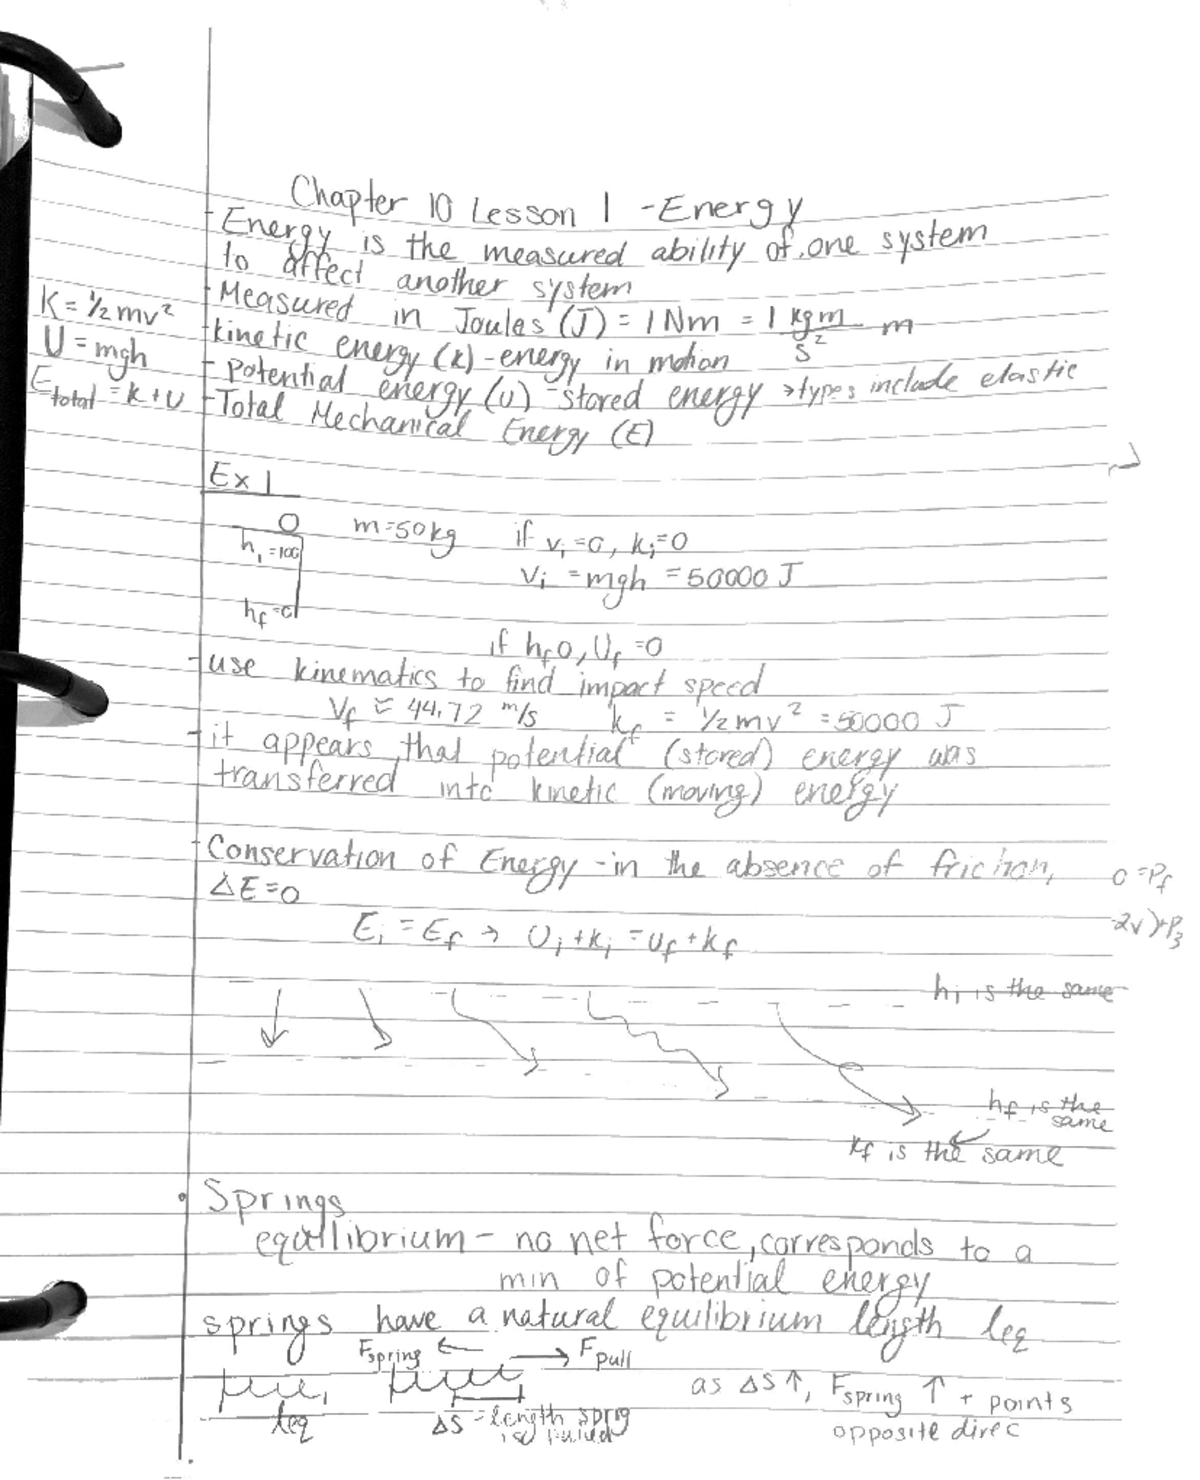 Chapter 10 Lesson 1 - Energy
- Energy is the measured ability of one system
to affect another system
- Measured in Joules (J) = 1 Nm = 1 kgm/s² m
K = ½ mv²
- kinetic energy (k) - energy in motion
U = mgh
- potential energy (u) - stored energy → types include elastic
Etotal = k + U
- Total Mechanical Energy (E)
Ex 1
m = 50 kg if vi = 0, ki = 0
hi = 100
Vi = mgh = 50000 J
hf = 0
if hf 0, Uf = 0
- use kinematics to find impact speed
Vf ≈ 44.72 m/s kf = ½ mv² = 50000 J
- it appears that potential (stored) energy was
transferred into kinetic (moving) energy
- Conservation of Energy - in the absence of friction,
0 = Pf
ΔE = 0
-2v) + P3
Ei = Ef → Ui + ki = uf + kf
hi is the same
hf is the
same
kf is the same
• Springs
equilibrium - no net force, corresponds to a
min of potential energy
springs have a natural equilibrium length leq
Fspring ← → Fpull
as ΔS ↑, Fspring ↑ + points
opposite direc
leq
ΔS - length sprig
is pulled